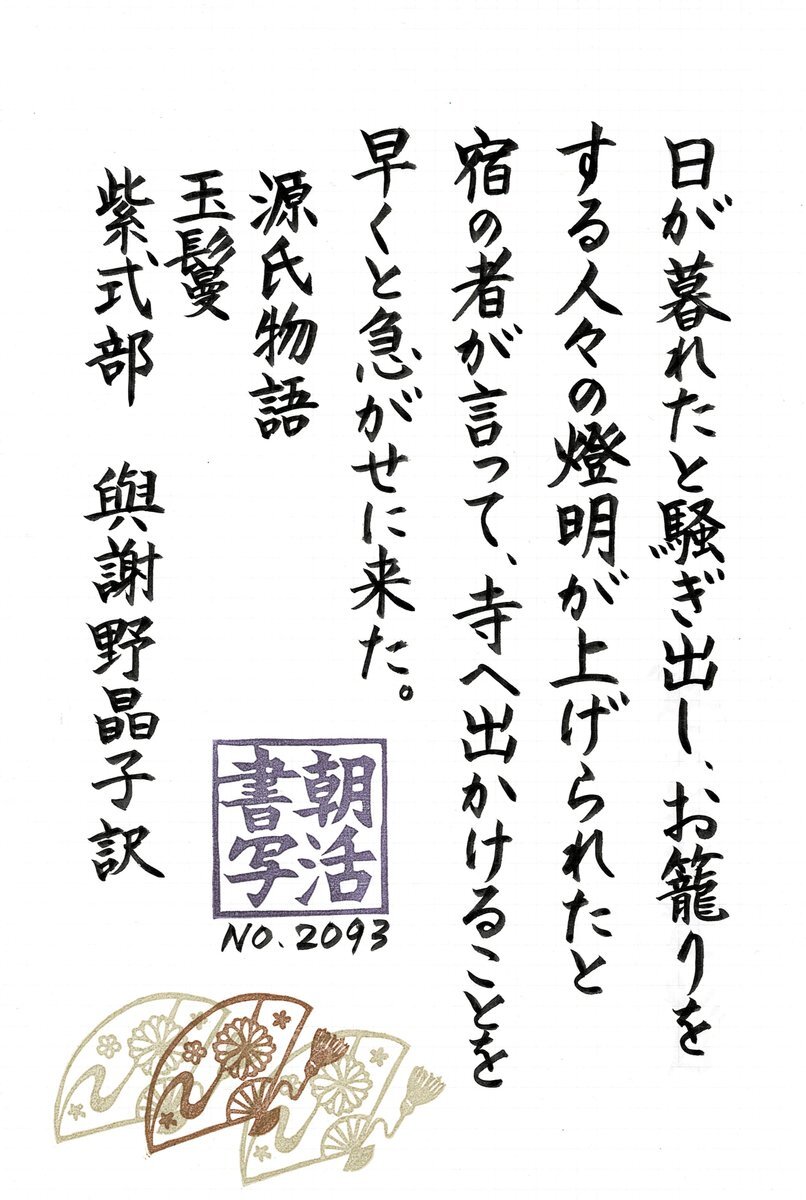 日が暮れたと騒ぎ出し、お籠りを
する人々の燈明が上げられたと
宿の者が言って、寺へ出かけることを
早くと急がせに来た。
源氏物語
玉鬘
紫式部　與謝野晶子訳
朝活
書写
NO.2093